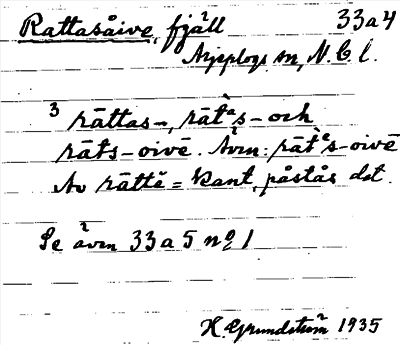 Rattasåive, fjäll 33a4
Arjeplogs sn, N. B. l.
3 rāttas-, rāt̀ᵃs- och
rāts-oivē. Även: rāt̀ᵉs-oivē
Av rāttĕ = kant, påstås det.
Se även 33a5 nº 1
H. Grundström 1935